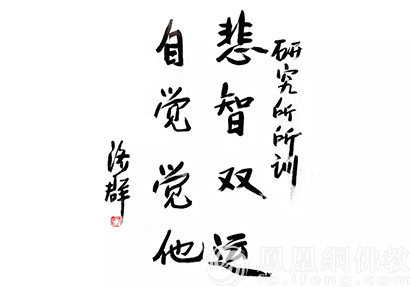 研究所所训
悲智双运
自觉觉他
济群
凤凰网佛教
fo.ifeng.com